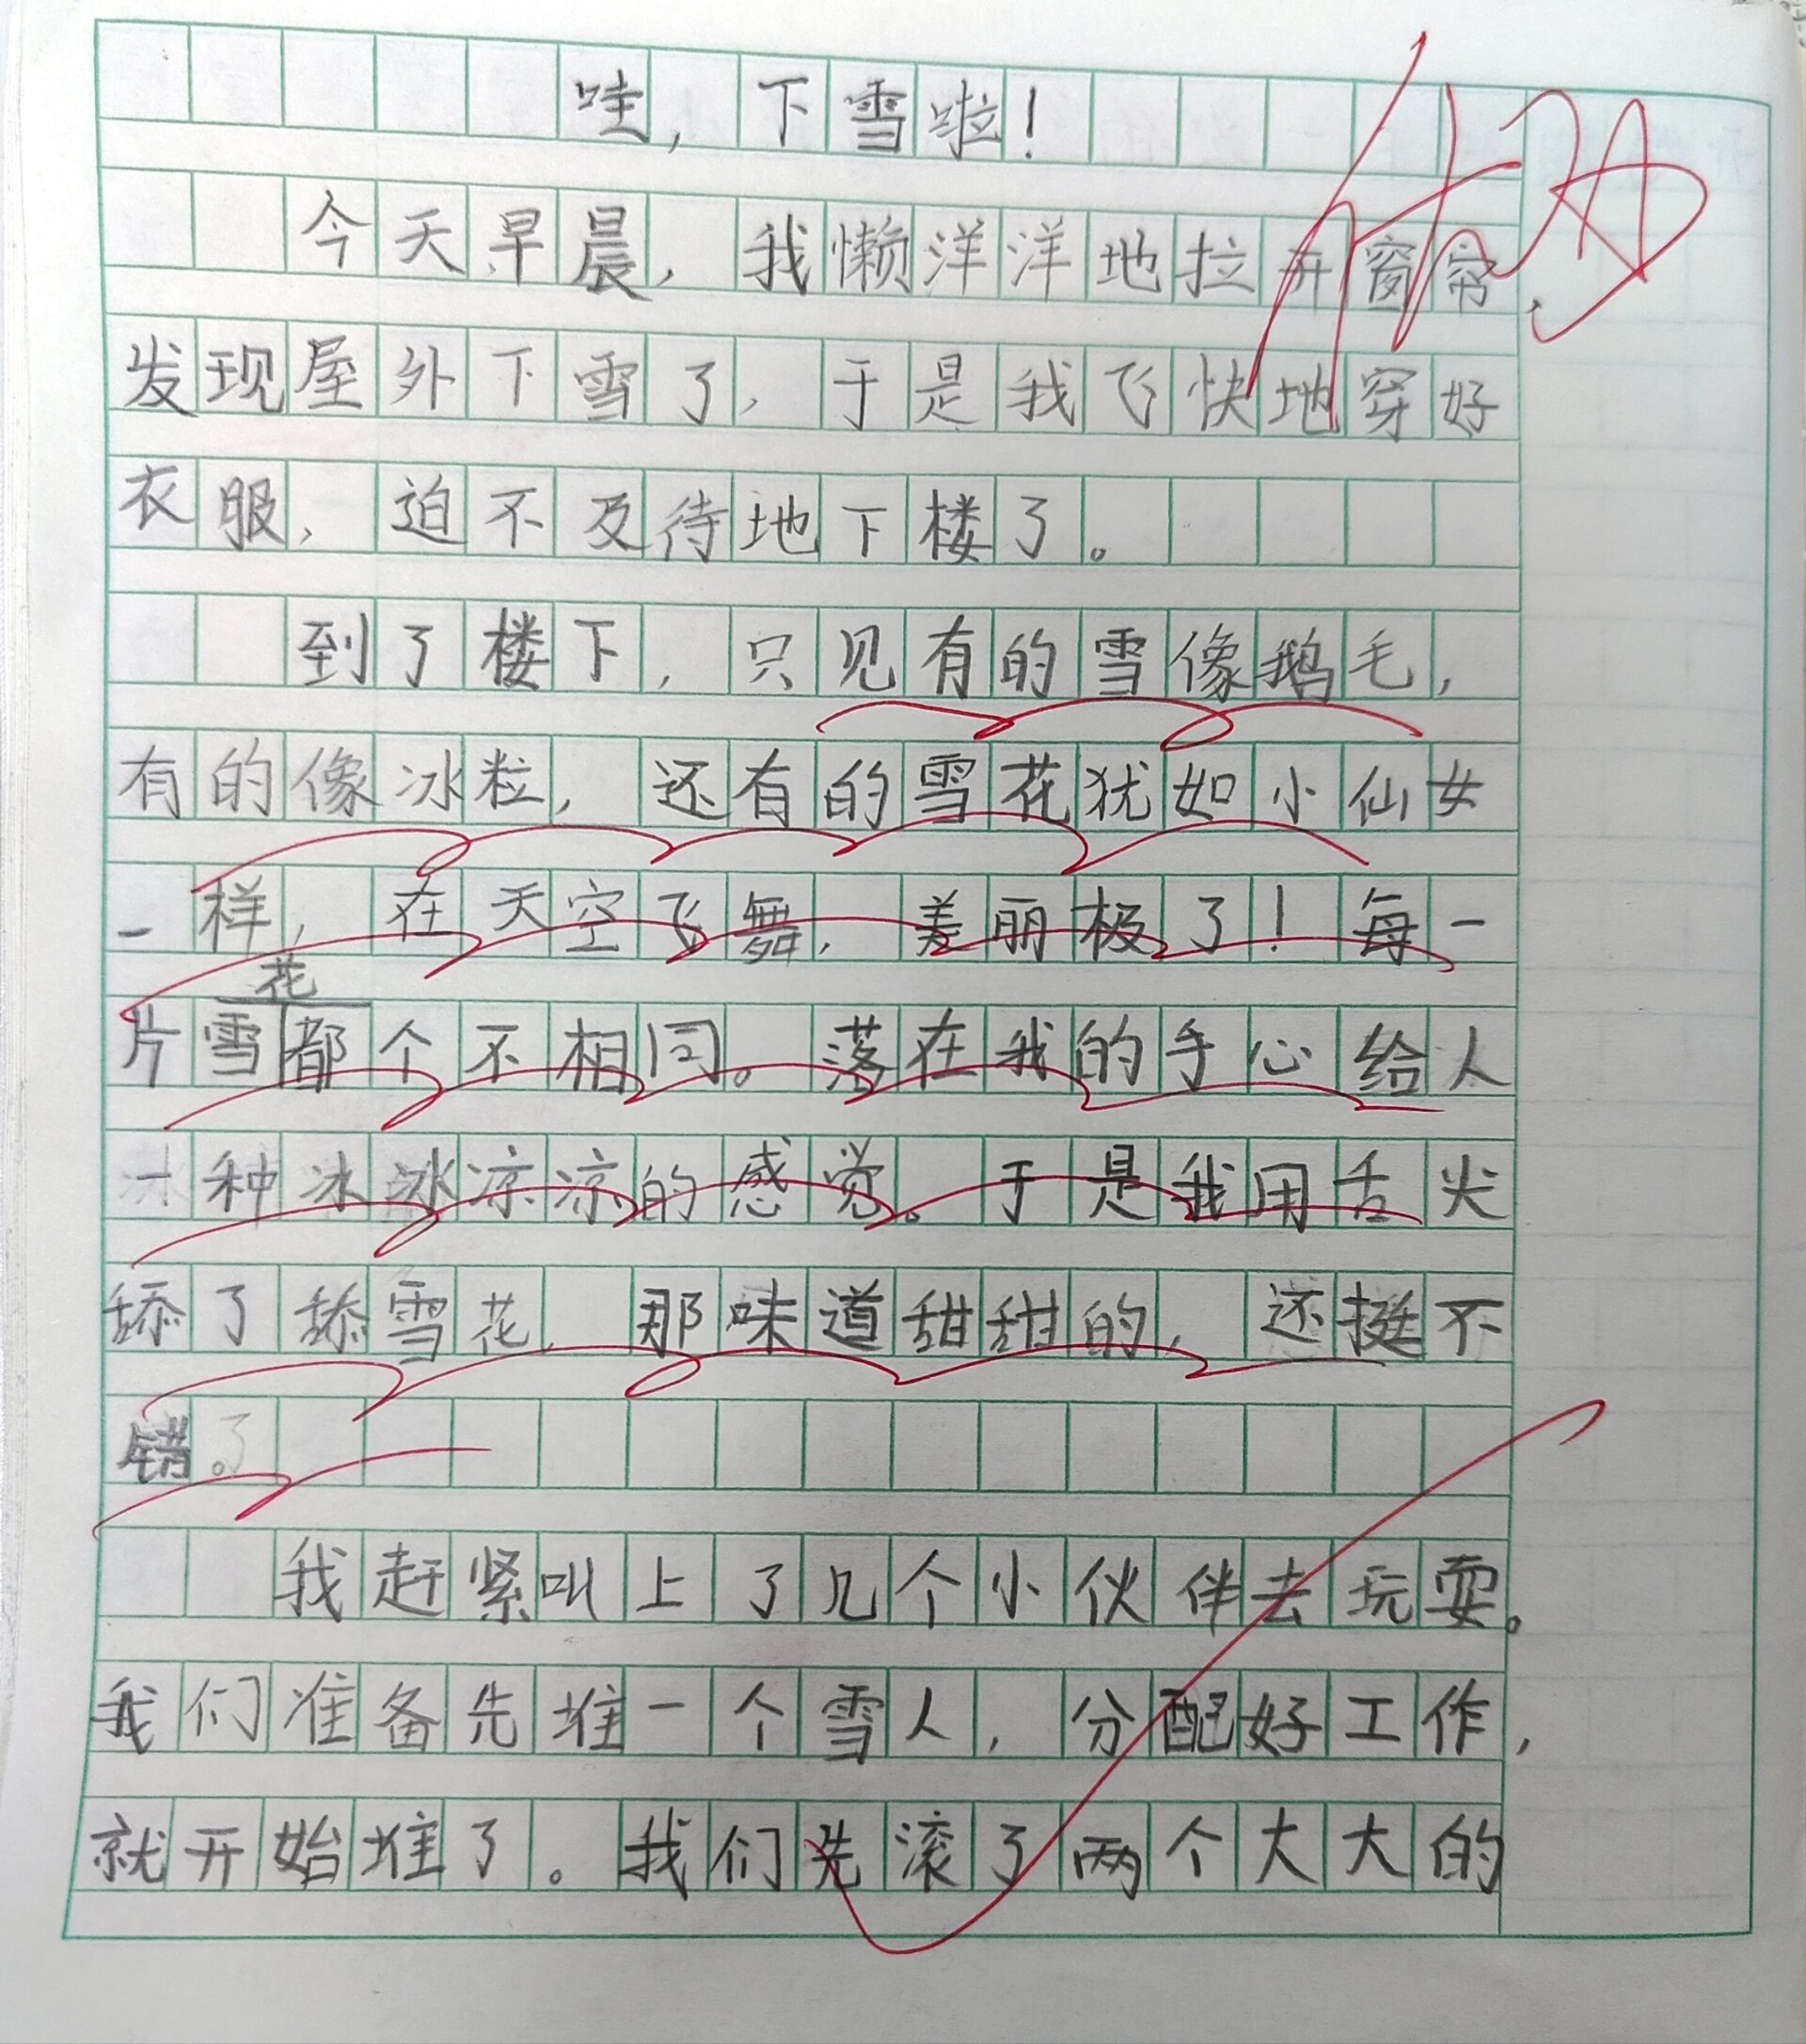 哇,下雪啦!
今天早晨,我懒洋洋地拉开窗帘,
发现屋外下雪了,于是我飞快地穿好
衣服,迫不及待地下楼了。
到了楼下,只见有的雪像鹅毛,
有的像冰粒,还有的雪花犹如小仙女
一样,在天空飞舞,美丽极了!每一
片雪花都个不相同。落在我的手心给人
一种冰冰凉凉的感觉。于是我用舌尖
舔了舔雪花,那味道甜甜的,还挺不
错。
我赶紧叫上了几个小伙伴去玩耍。
我们准备先堆一个雪人,分配好工作,
就开始堆了。我们先滚了两个大大的